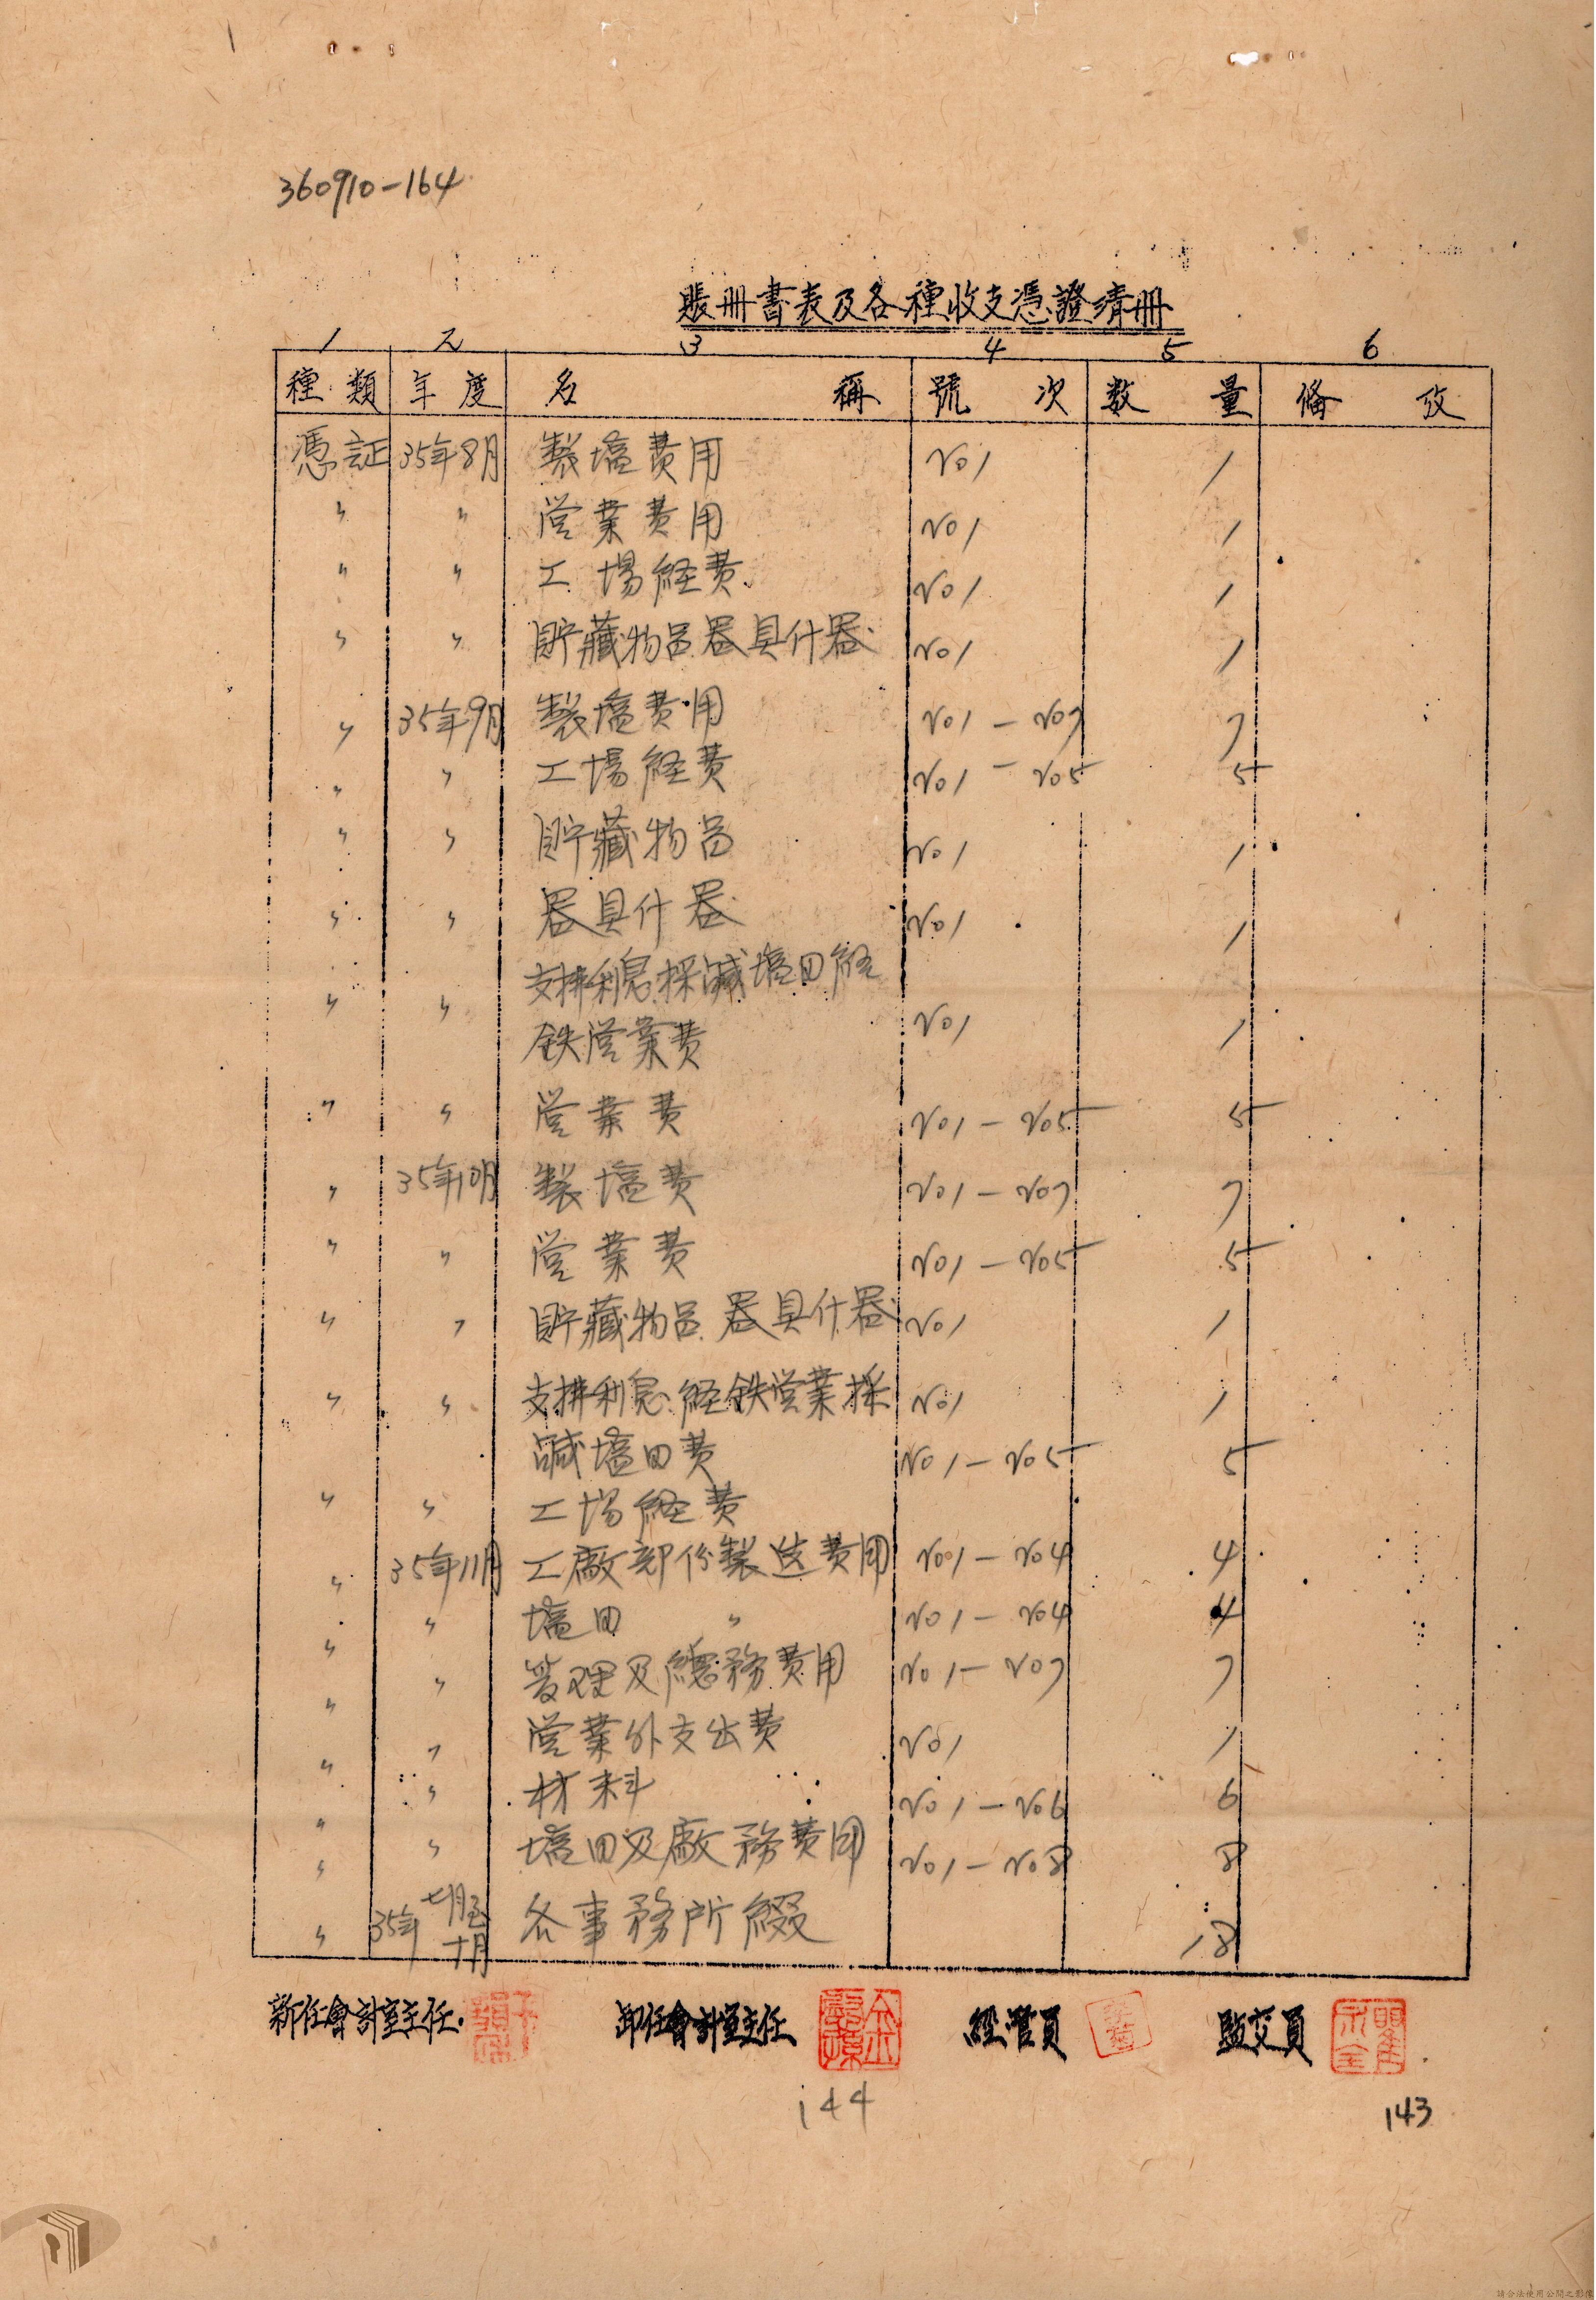 360910-164
賬册書表及各種收支憑證清册
1 2 3 4 5 6
種類 年度 名稱 號次 数量 俻攷
憑証 35年8月 製塩費用 No1 1
〃 〃 営業費用 No1 1
〃 〃 工場経費 No1 1
〃 〃 貯藏物品器具什器 No1 1
〃 35年9月 製塩費用 No1-No7 7
〃 〃 工場経費 No1-No5 5
〃 〃 貯藏物品 No1 1
〃 〃 器具什器 No1 1
支拂利息採鹹塩田経
〃 〃 鉄営業費 No1 1
〃 〃 営業費 No1-No5 5
〃 35年10月 製塩費 No1-No7 7
〃 〃 営業費 No1-No5 5
〃 〃 貯藏物品器具什器 No1 1
〃 〃 支拂利息経鉄営業採 No1 1
鹹塩田費 No1-No5 5
〃 〃 工場経費
〃 35年11月 工廠部份製造費用 No1-No4 4
〃 〃 塩田 〃 No1-No4 4
〃 〃 管理及總務費用 No1-No7 7
〃 〃 営業外支出費 No1 1
〃 〃 材料 No1-No6 6
〃 〃 塩田及廠務費用 No1-No8 8
〃 35年七月至十月 各事務所綴 18
新任會計室主任 卸任會計室主任 經管員 監交員
144
143
請合法使用公開之影像